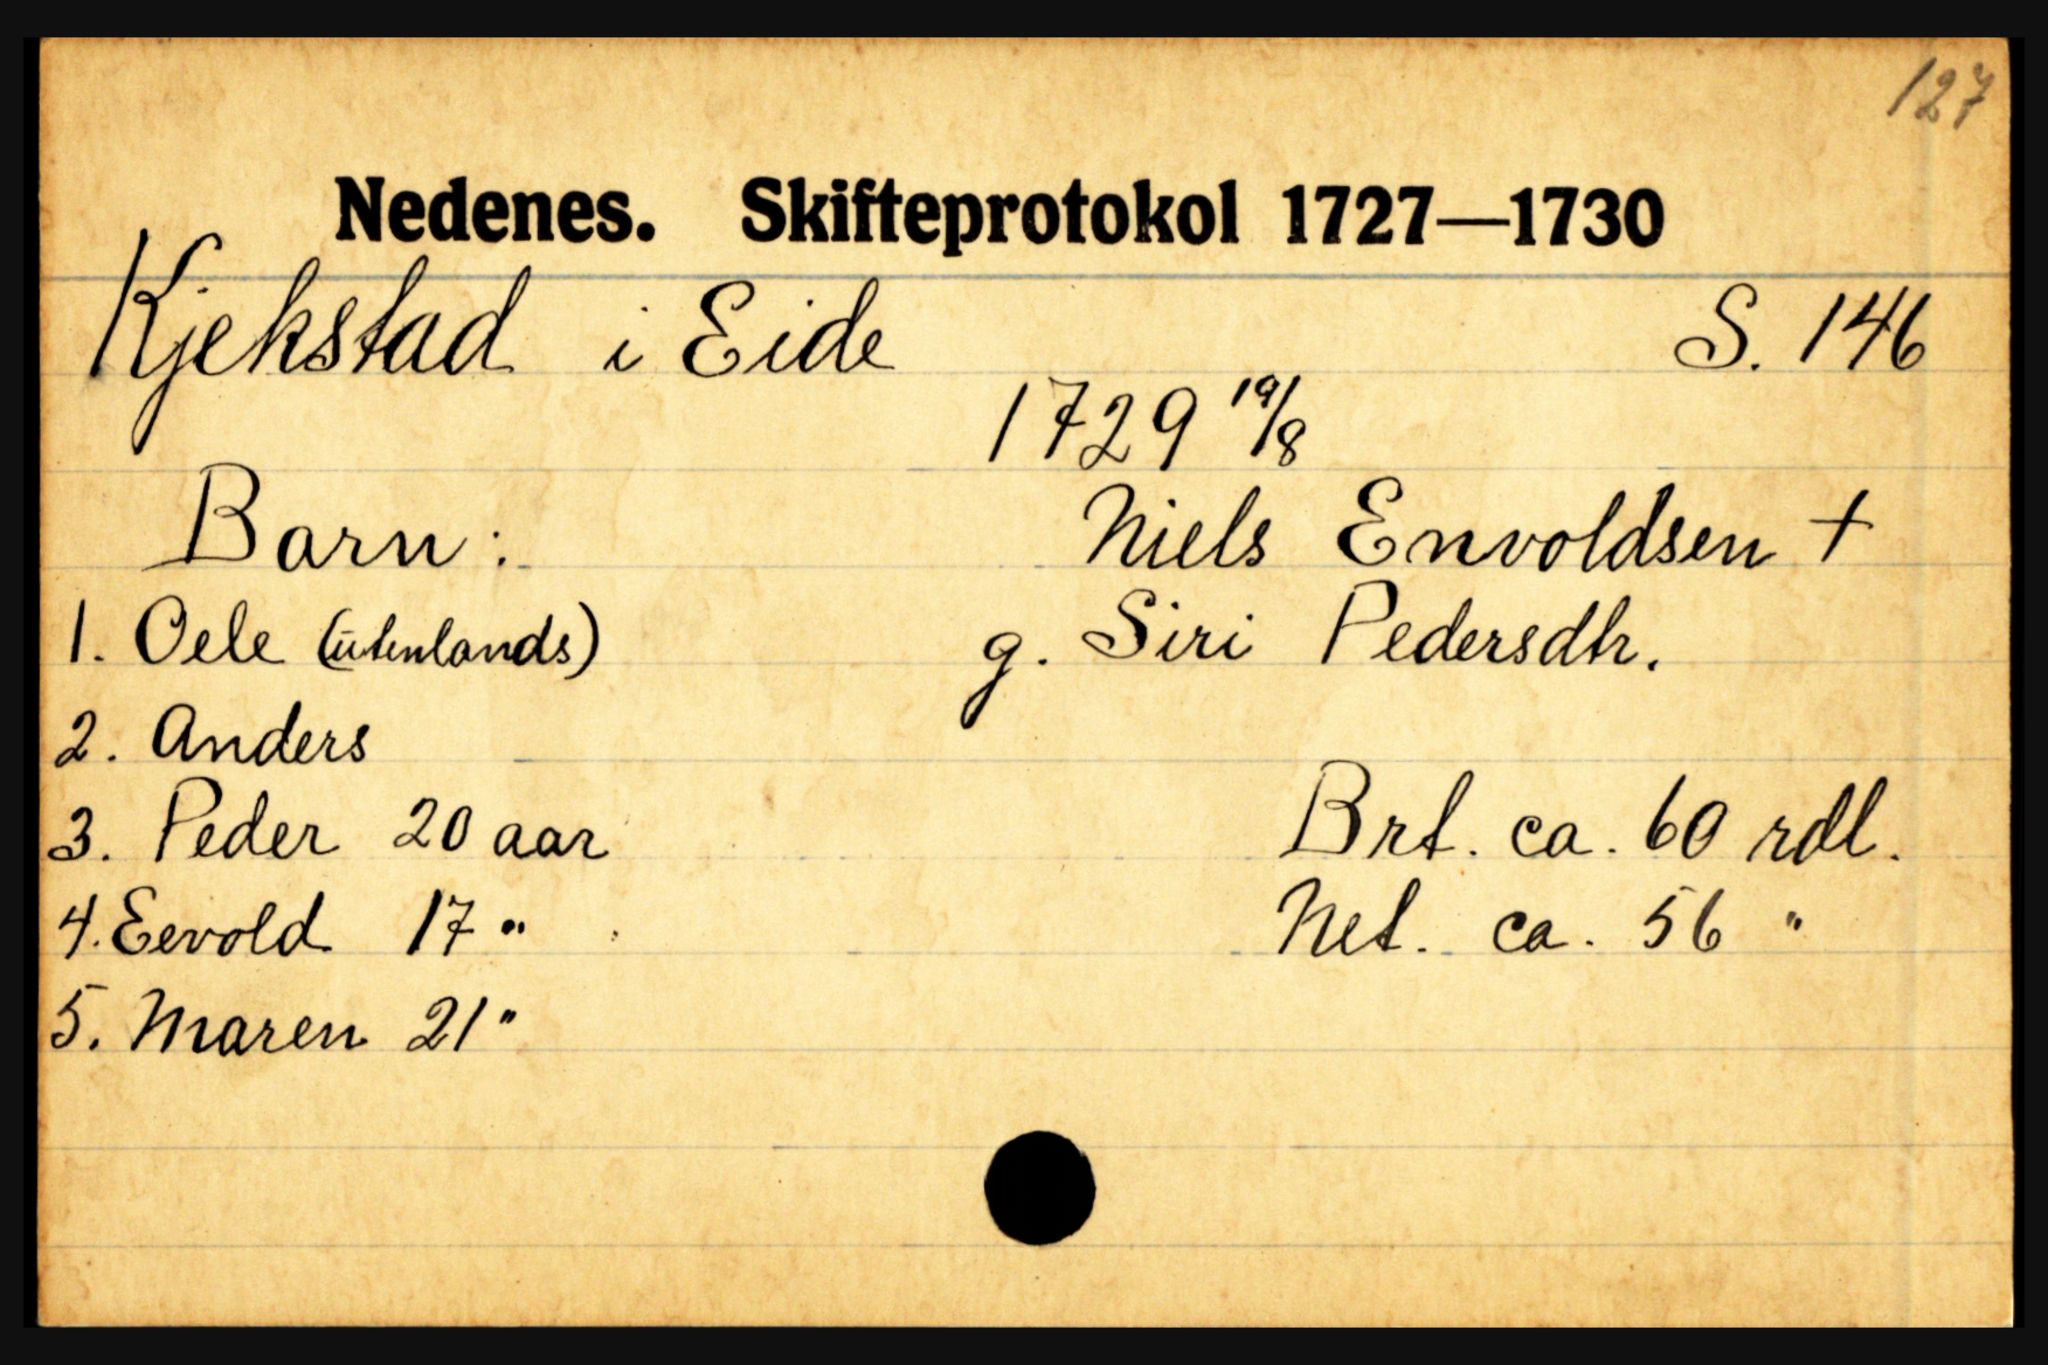 127
Nedenes. Skifteprotokol 1727—1730
Kjekstad i Eide S. 146
1729 19/8
Barn: Niels Envoldsen +
1. Oele (utenlands) g. Siri Pedersdtr.
2. Anders
3. Peder 20 aar Brt. ca. 60 rdl.
4. Eevold 17 " Net. ca. 56 "
5. Maren 21 "